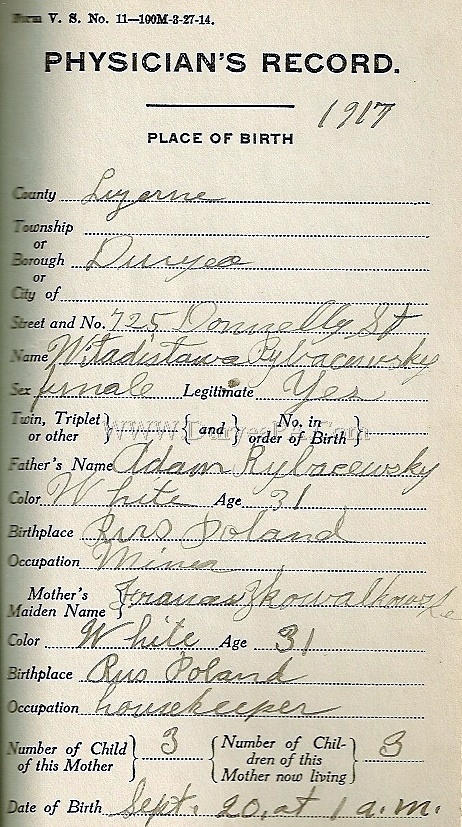 Form V. S. No. 11—100M-3-27-14.
PHYSICIAN'S RECORD.
1917
PLACE OF BIRTH
County Luzerne
Township
or
Borough Duryea
or
City of
Street and No. 725 Donnelly St
Name Wladislawa Rybacewsky
Sex female Legitimate Yes
Twin, Triplet or other } { and } No. in order of Birth }
www.DuryeaPA.com
Father's Name Adam Rybacewsky
Color White Age 31
Birthplace Rus Poland
Occupation Miner
Mother's Maiden Name }
Color White Age 31
Birthplace Rus Poland
Occupation housekeeper
Number of Child of this Mother } 3 { Number of Children of this Mother now living } 3
Date of Birth Sept. 20, at 1 a.m.